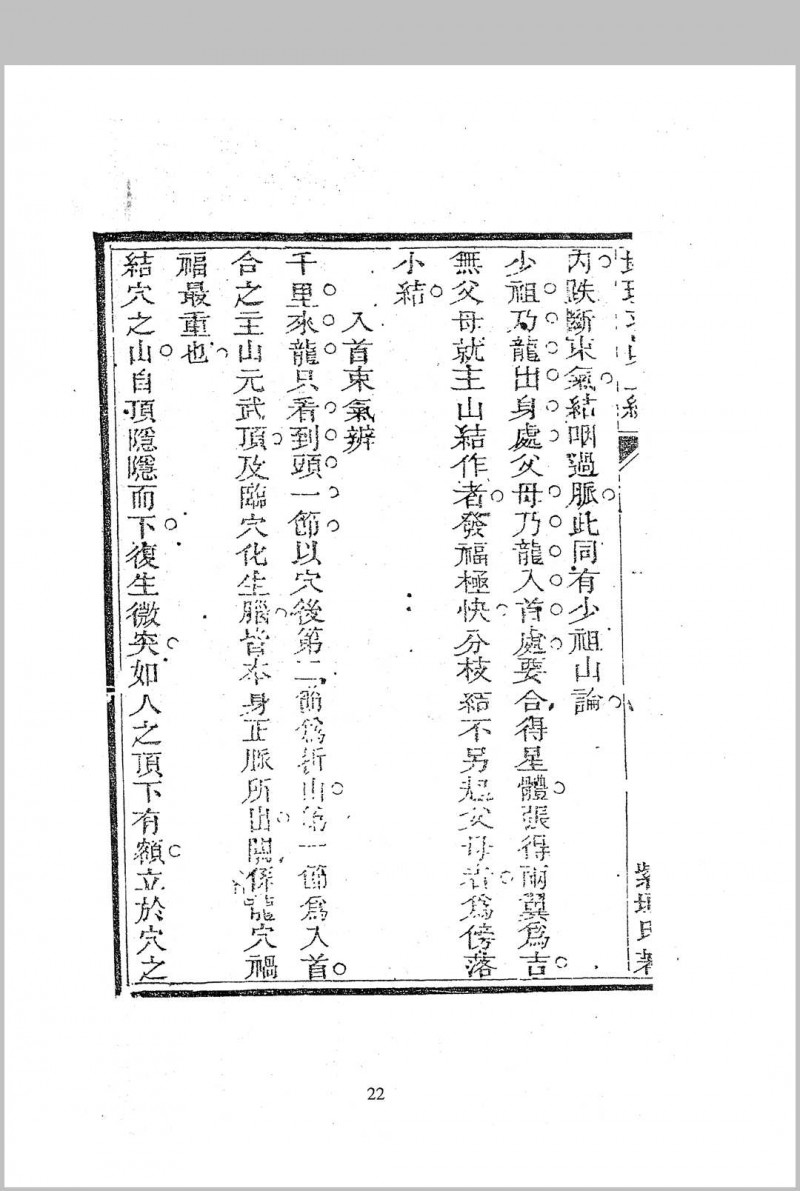 內跌斷束氣結咽過脈此同有少祖山論
少祖乃龍出身處父母乃龍入首處要合得星體張得兩翼為吉
無父母就主山結作者發福極快分枝結不另起父母者為傍落
小結
入首束氣辨
千里來龍只看到頭一節以穴後第二節為折山第一節為入首
合之主山元武頂及臨穴化生腦皆本身正脈所出關係龍穴禍
福最重也
結穴之山自頂隱隱而下復生微突如人之頂下有額立於穴之
22